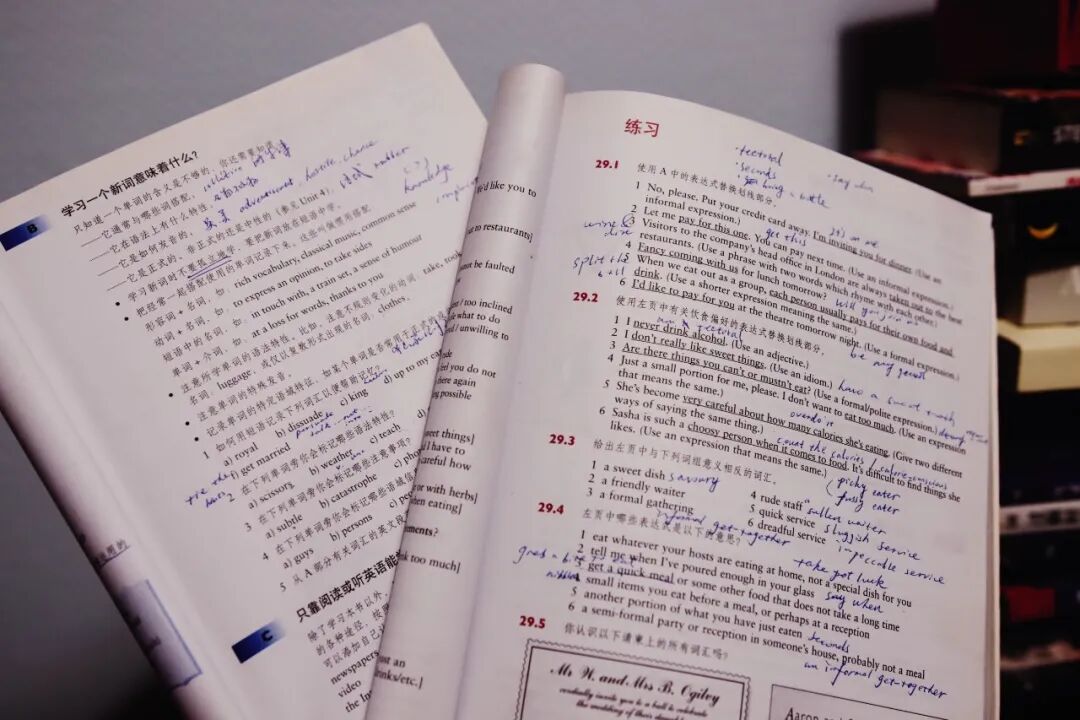 B 学习一个新词意味着什么?
只知道一个单词的含义是不够的，你还需要知道:
—它通常与哪些词搭配,
—它在语法上有什么特性,
—它是如何发音的,
—它是正式的、非正式的还是中性的 (参见 Unit 4),
• 学习新词时不要孤立地学，要把新词放在短语中学。
• 把经常一起搭配使用的单词记录下来。这些可能用搭配
形容词 + 名词，如: rich vocabulary, classical music, common sense
动词 + 名词，如: to express an opinion, to take sides
短语中的名词，如: in touch with, a train set, a sense of humour
单词 + 介词，如: at a loss for words, thanks to you
• 注意所学单词的语法特性。比如，注意不规则变化的动词: take, took,
名词: luggage, 或仅以复数形式出现的名词: clothes.
• 注意单词的特殊发音。
• 记录单词的特定语域特征，如某个单词是否常用于正式的
1 如何用短语记录下列词汇以便帮助记忆?
a) royal b) dissuade c) king d) up to my
f) get married b) weather c) teach d)
2 在下列单词旁你会标记哪些语法特性?
a) scissors
3 在下列单词旁你会标记哪些注意事项?
a) subtle b) catastrophe c)
4 在下列单词旁你会标记哪些语域信
a) guys b) persons c)
5 从 A 部分有关词汇的英文段
C 只靠阅读或听英语能
除了学习本书以外，
的各种途径，
可以添加自己
newspapers
video
the In
'd like you to
at to restaurants]
not be faulted
/ too inclined
e what to do
/ unwilling to
eel you do not
ere again
ng possible
weet things]
d I have to
careful how
or with herbs]
en eating]
ements?
k too much]
ust an
rinks/etc.]
练习
· teetotal
· seconds
· say when
29.1 使用 A 中的表达式替换划线部分。
1 No, please. Put your credit card away. I'm inviting you for dinner. (Use an
informal expression.) it's on me
2 Let me pay for this one. You can pay next time. (Use an informal expression.)
get this
3 Visitors to the company's head office in London are always taken out to the best
restaurants. (Use a phrase with two words which rhyme with each other.)
wine & dine
4 Fancy coming with us for lunch tomorrow? will you join us
5 When we eat out as a group, each person usually pays for their own food and
drink. (Use a shorter expression meaning the same.)
split the bill
6 I'd like to pay for you at the theatre tomorrow night. (Use a formal expression.)
be my guest
29.2 使用左页中有关饮食偏好的表达式替换划线部分。
1 I never drink alcohol. (Use an adjective.)
teetotal
2 I don't really like sweet things. (Use an idiom.) have a sweet tooth
3 Are there things you can't or mustn't eat? (Use a formal/polite expression.)
4 Just a small portion for me, please. I don't want to eat too much. (Use an expression
that means the same.) overdo it
5 She's become very careful about how many calories she's eating. (Give two different
ways of saying the same thing.) count the calories / calorie-conscious
6 Sasha is such a choosy person when it comes to food. It's difficult to find things she
likes. (Use an expression that means the same.) picky eater
fussy eater
29.3 给出左页中与下列词组意义相反的词汇。
1 a sweet dish savoury
2 a friendly waiter
3 a formal gathering
informal get-together
4 rude staff a sullen waiter
5 quick service sluggish service
6 dreadful service impeccable service
29.4 左页中哪些表达式是以下的意思?
1 eat whatever your hosts are eating at home, not a special dish for you
take pot luck
2 tell me when I've poured enough in your glass say when
3 get a quick meal or some other food that does not take a long time
grab a bite to eat
4 small items you eat before a meal, or perhaps at a reception
nibbles
5 another portion of what you have just eaten seconds
6 a semi-formal party or reception in someone's house, probably not a meal
an informal get-together
29.5 你认识以下请柬上的所有词汇吗?
Mr W. and Mrs B. Ogilvy
cordially invite you to a ball to celebrate
the wedding of their
Aaron and